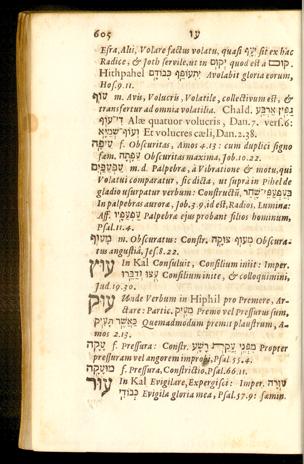 605 עו
Esra, Alii, Volare factus volatu, quasi יָעֻף sit ex hac
Radice, & Joth servile, ut in יָקוּם quod est à קוּם.
Hithpahel יִתְעוֹפֵף כְּבוֹדָם Avolabit gloria eorum,
Hos. 9. 11.
עוֹף m. Avis, Volucris, Volatile, collectivum est, &
transfertur ad omnia volatilia. Chald.
Alæ quatuor volucris, Dan. 7. vers. 6:
Et volucres cæli, Dan. 2. 38.
f. Obscuritas, Amos 4. 13: cum duplici signo
fœm. Obscuritas maxima, Job. 10. 22.
עַפְעַפִּים m. d. Palpebræ, à Vibratione & motu, qui
Volatui comparatur, sic dicta, ut suprà in Pihel de
gladio usurpatur verbum: Constructè,
In palpebras auroræ, Job. 3. 9. id est, Radios. Lumina:
Aff. עַפְעַפָּיו Palpebræ ejus probant filios hominum,
Psal. 11. 4.
מָעוּף m. Obscuratus: Constr. מְעוּף צוּקָה Obscura-
tus angustiâ, Jes. 8. 22.
עוּץ In Kal Consuluit, Consilium iniit: Imper.
עֻצוּ וְדַבֵּרוּ Consilium inite, & colloquimini,
Jud. 19. 30.
עוּק Unde Verbum in Hiphil pro Premere, Ar-
ctare: Partic. מֵעִיק Premo vel Pressurus sum,
כַּאֲשֶׁר תָּעִיק Quemadmodum premit plaustrum, A-
mos 2. 13.
עָקָה f. Pressura: Constr. מִפְּנֵי עָקַת רָשָׁע Propter
pressuram vel angorem improbi, Psal. 55. 4.
מוּעָקָה f. Pressura, Constrictio, Psal. 66. 11.
עוּר In Kal Evigilare, Expergisci: Imper. עוּרָה
כְבוֹדִי Evigila gloria mea, Psal. 57. 9: fœmin.